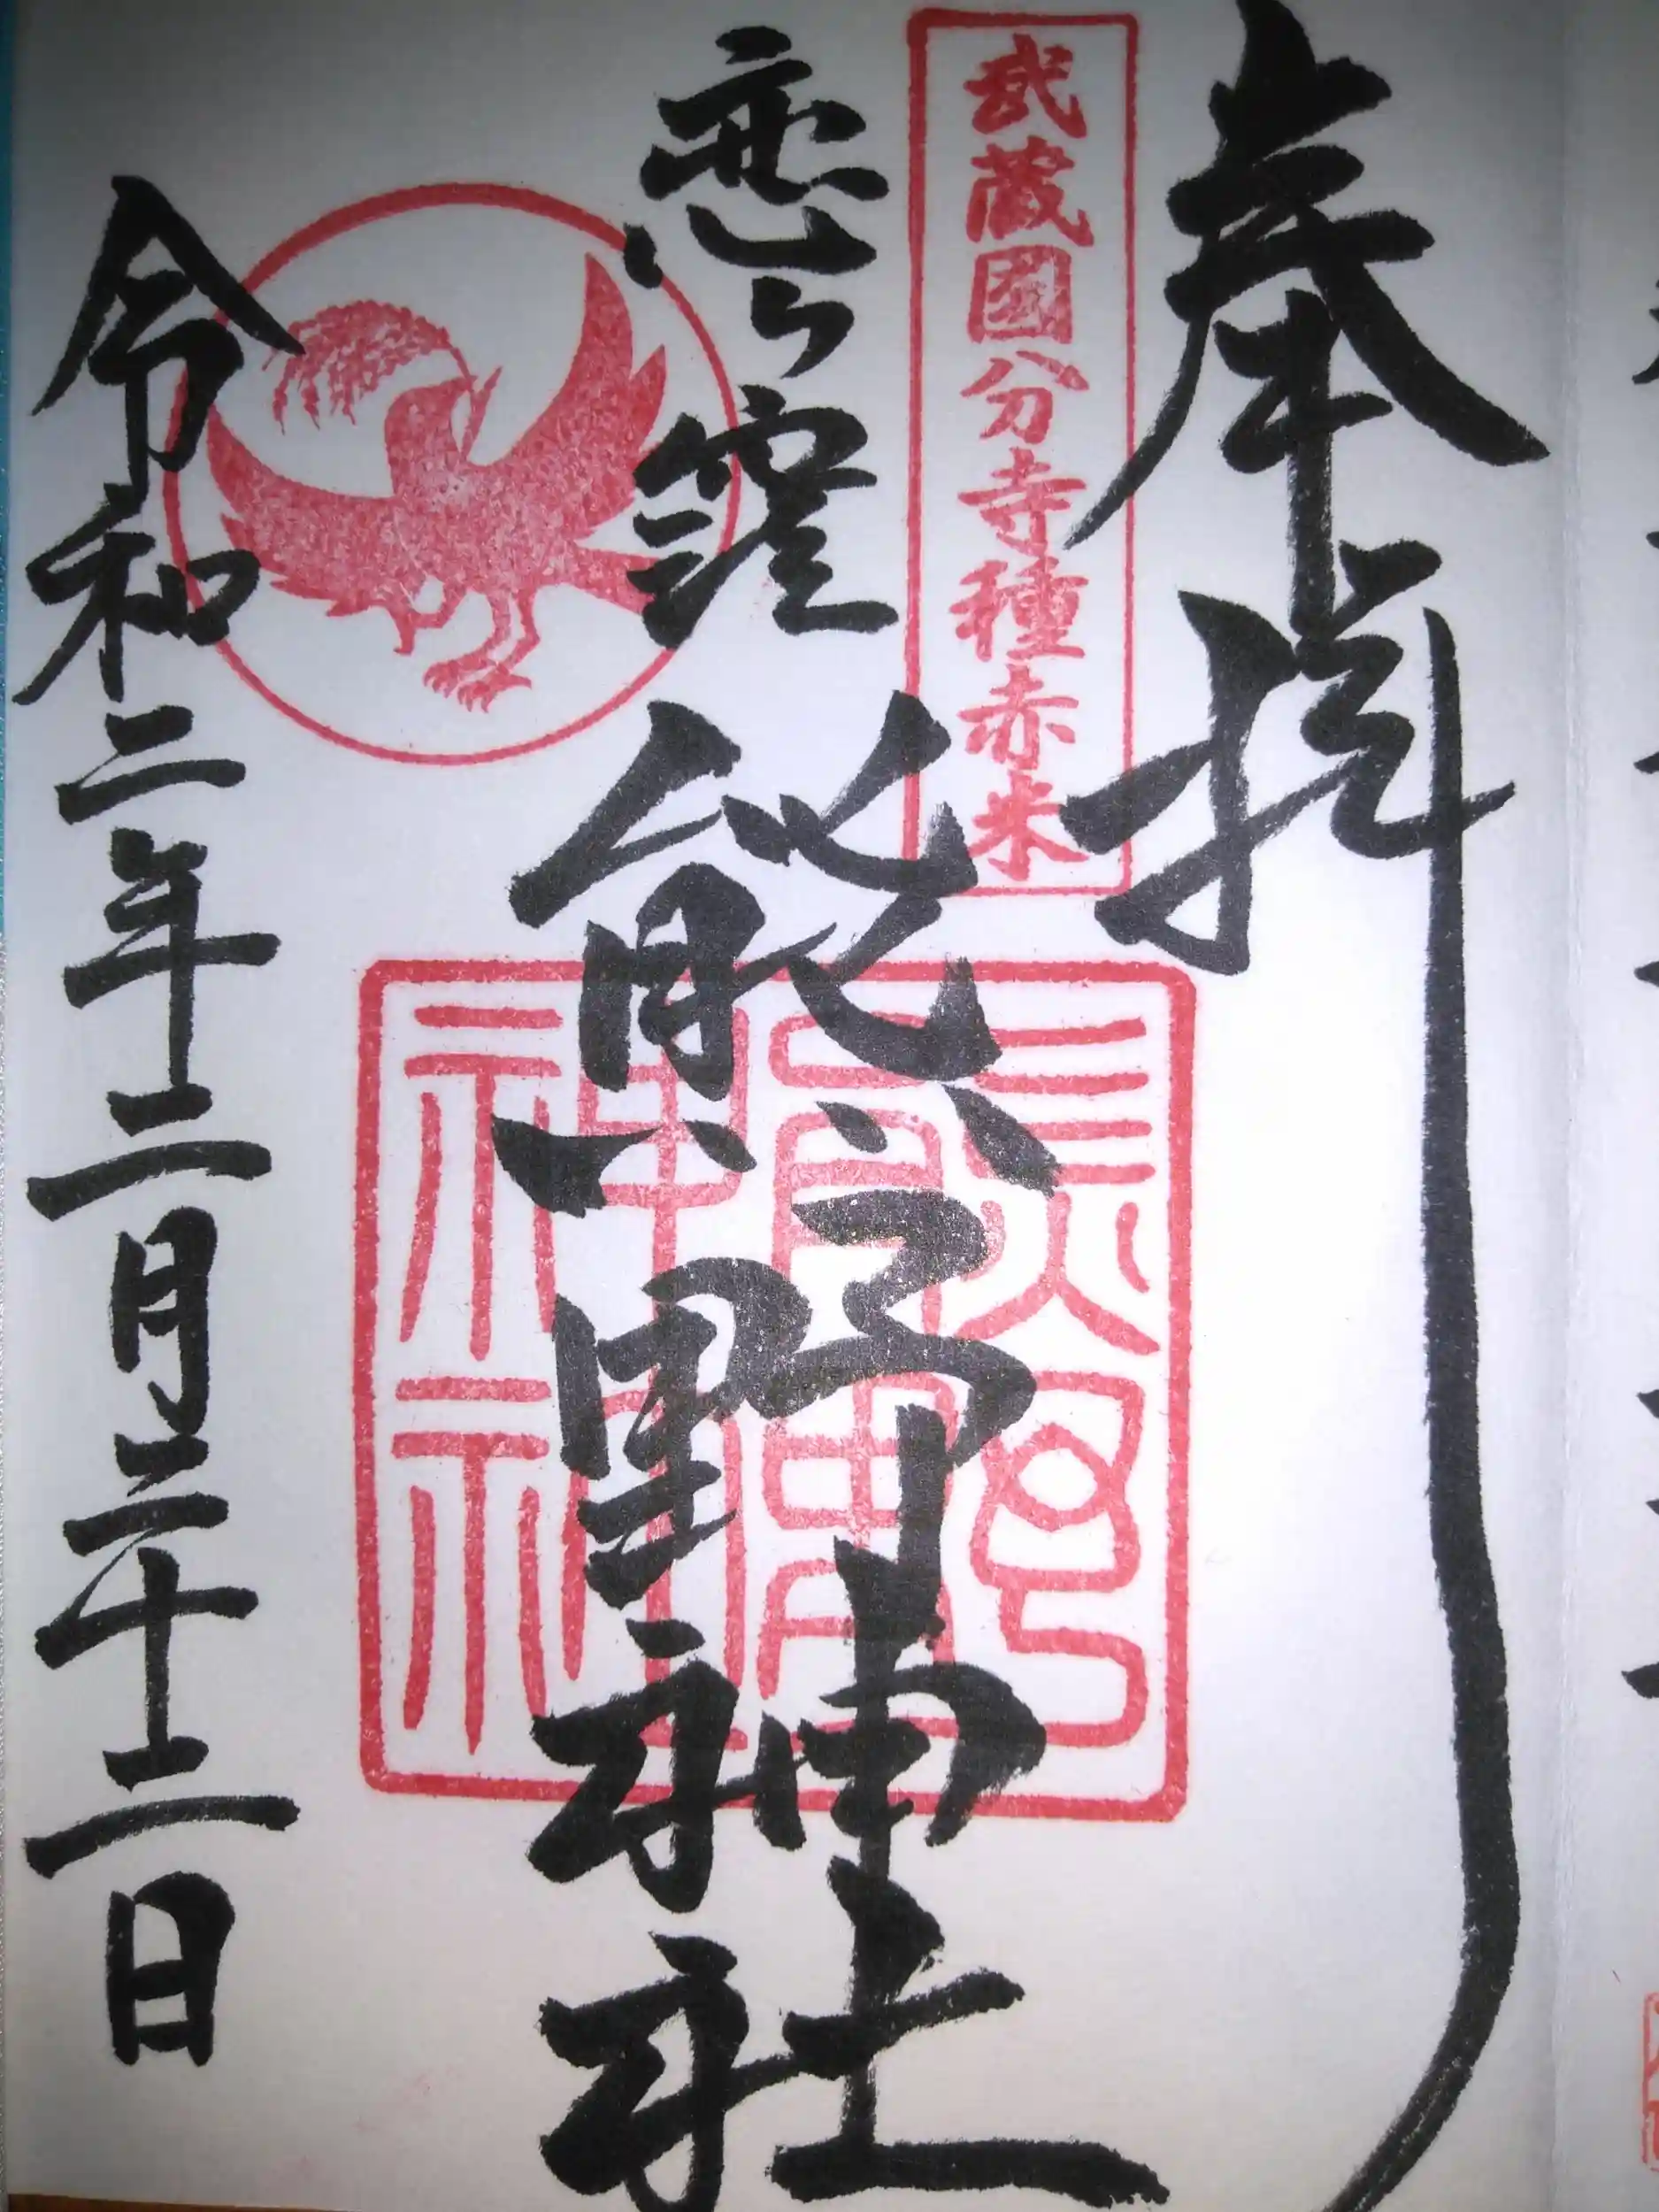 奉拝
武蔵國分寺種赤米
恋ヶ窪
熊野神社
令和二年二月二十二日